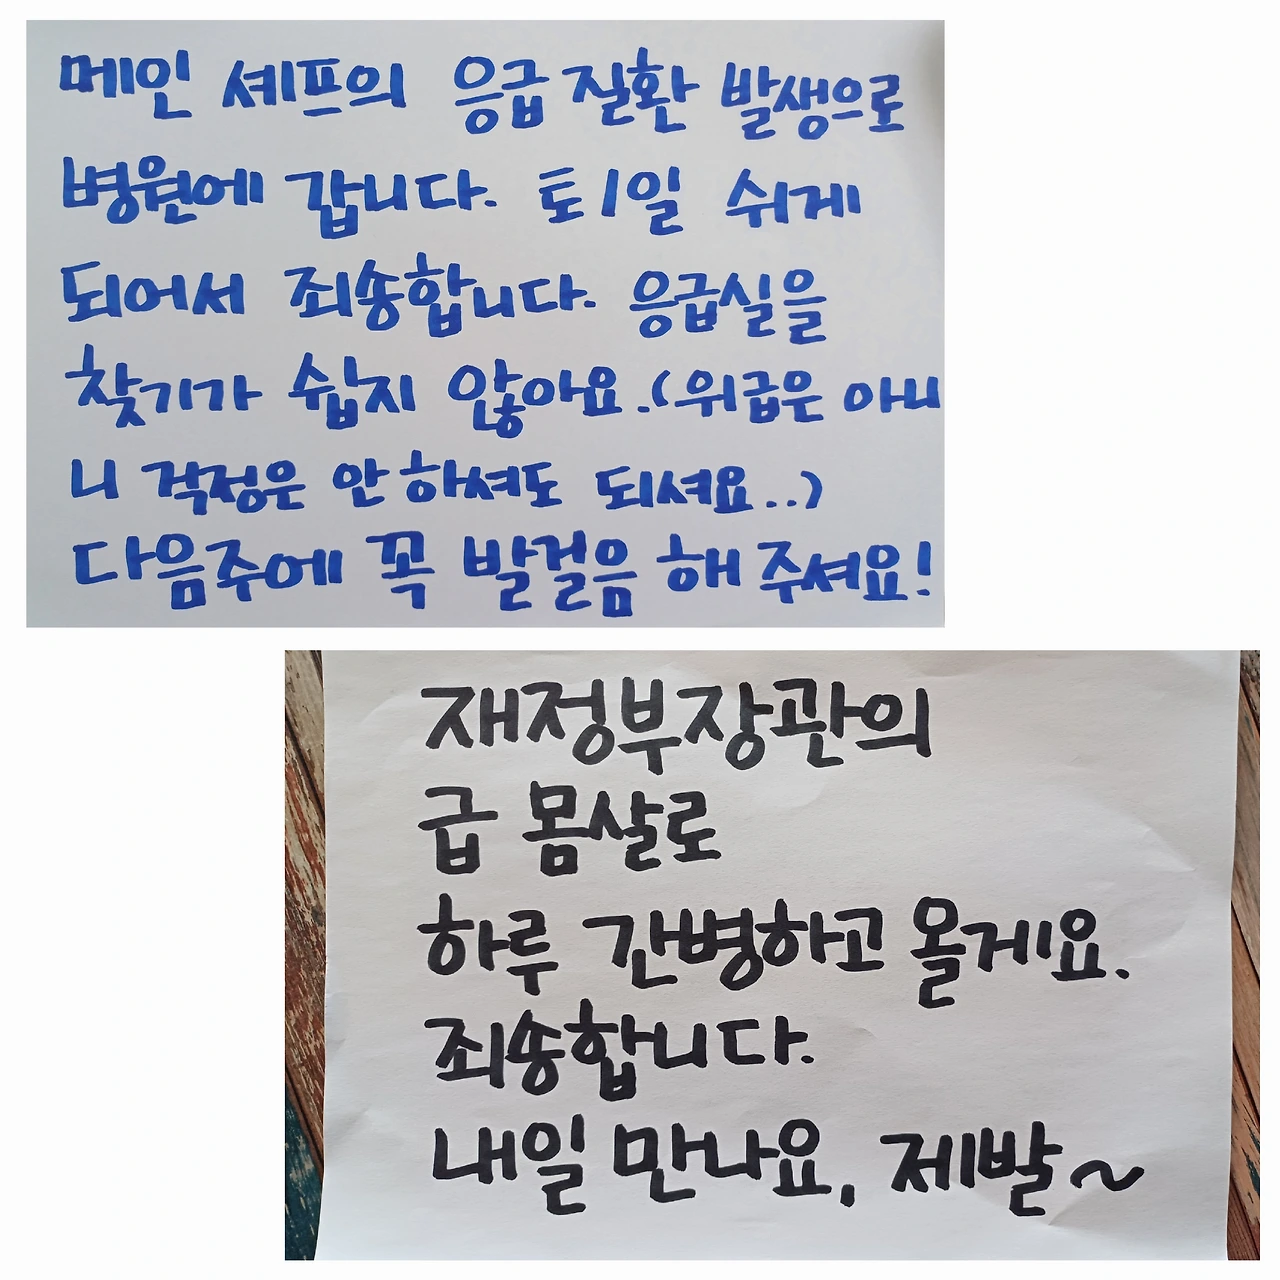 메인 셰프의 응급 질환 발생으로
병원에 갑니다. 토/일 쉬게
되어서 죄송합니다. 응급실을
찾기가 쉽지 않아요.(위급은 아니
니 걱정은 안 하셔도 되셔요..)
다음주에 꼭 발걸음 해 주셔요!
재정부장관의
급 몸살로
하루 간병하고 올게요.
죄송합니다.
내일 만나요, 제발~